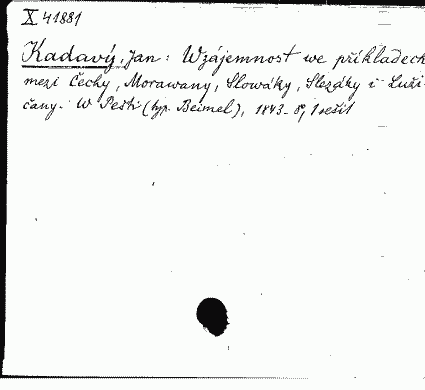 X 41881
Kadavý, Jan: Wzájemnost we příkladech
mezi Čechy, Morawany, Slowáky, Slezáky i Luži-
čany. W Pešti (typ. Beimel), 1843. 8°, 1 sešit